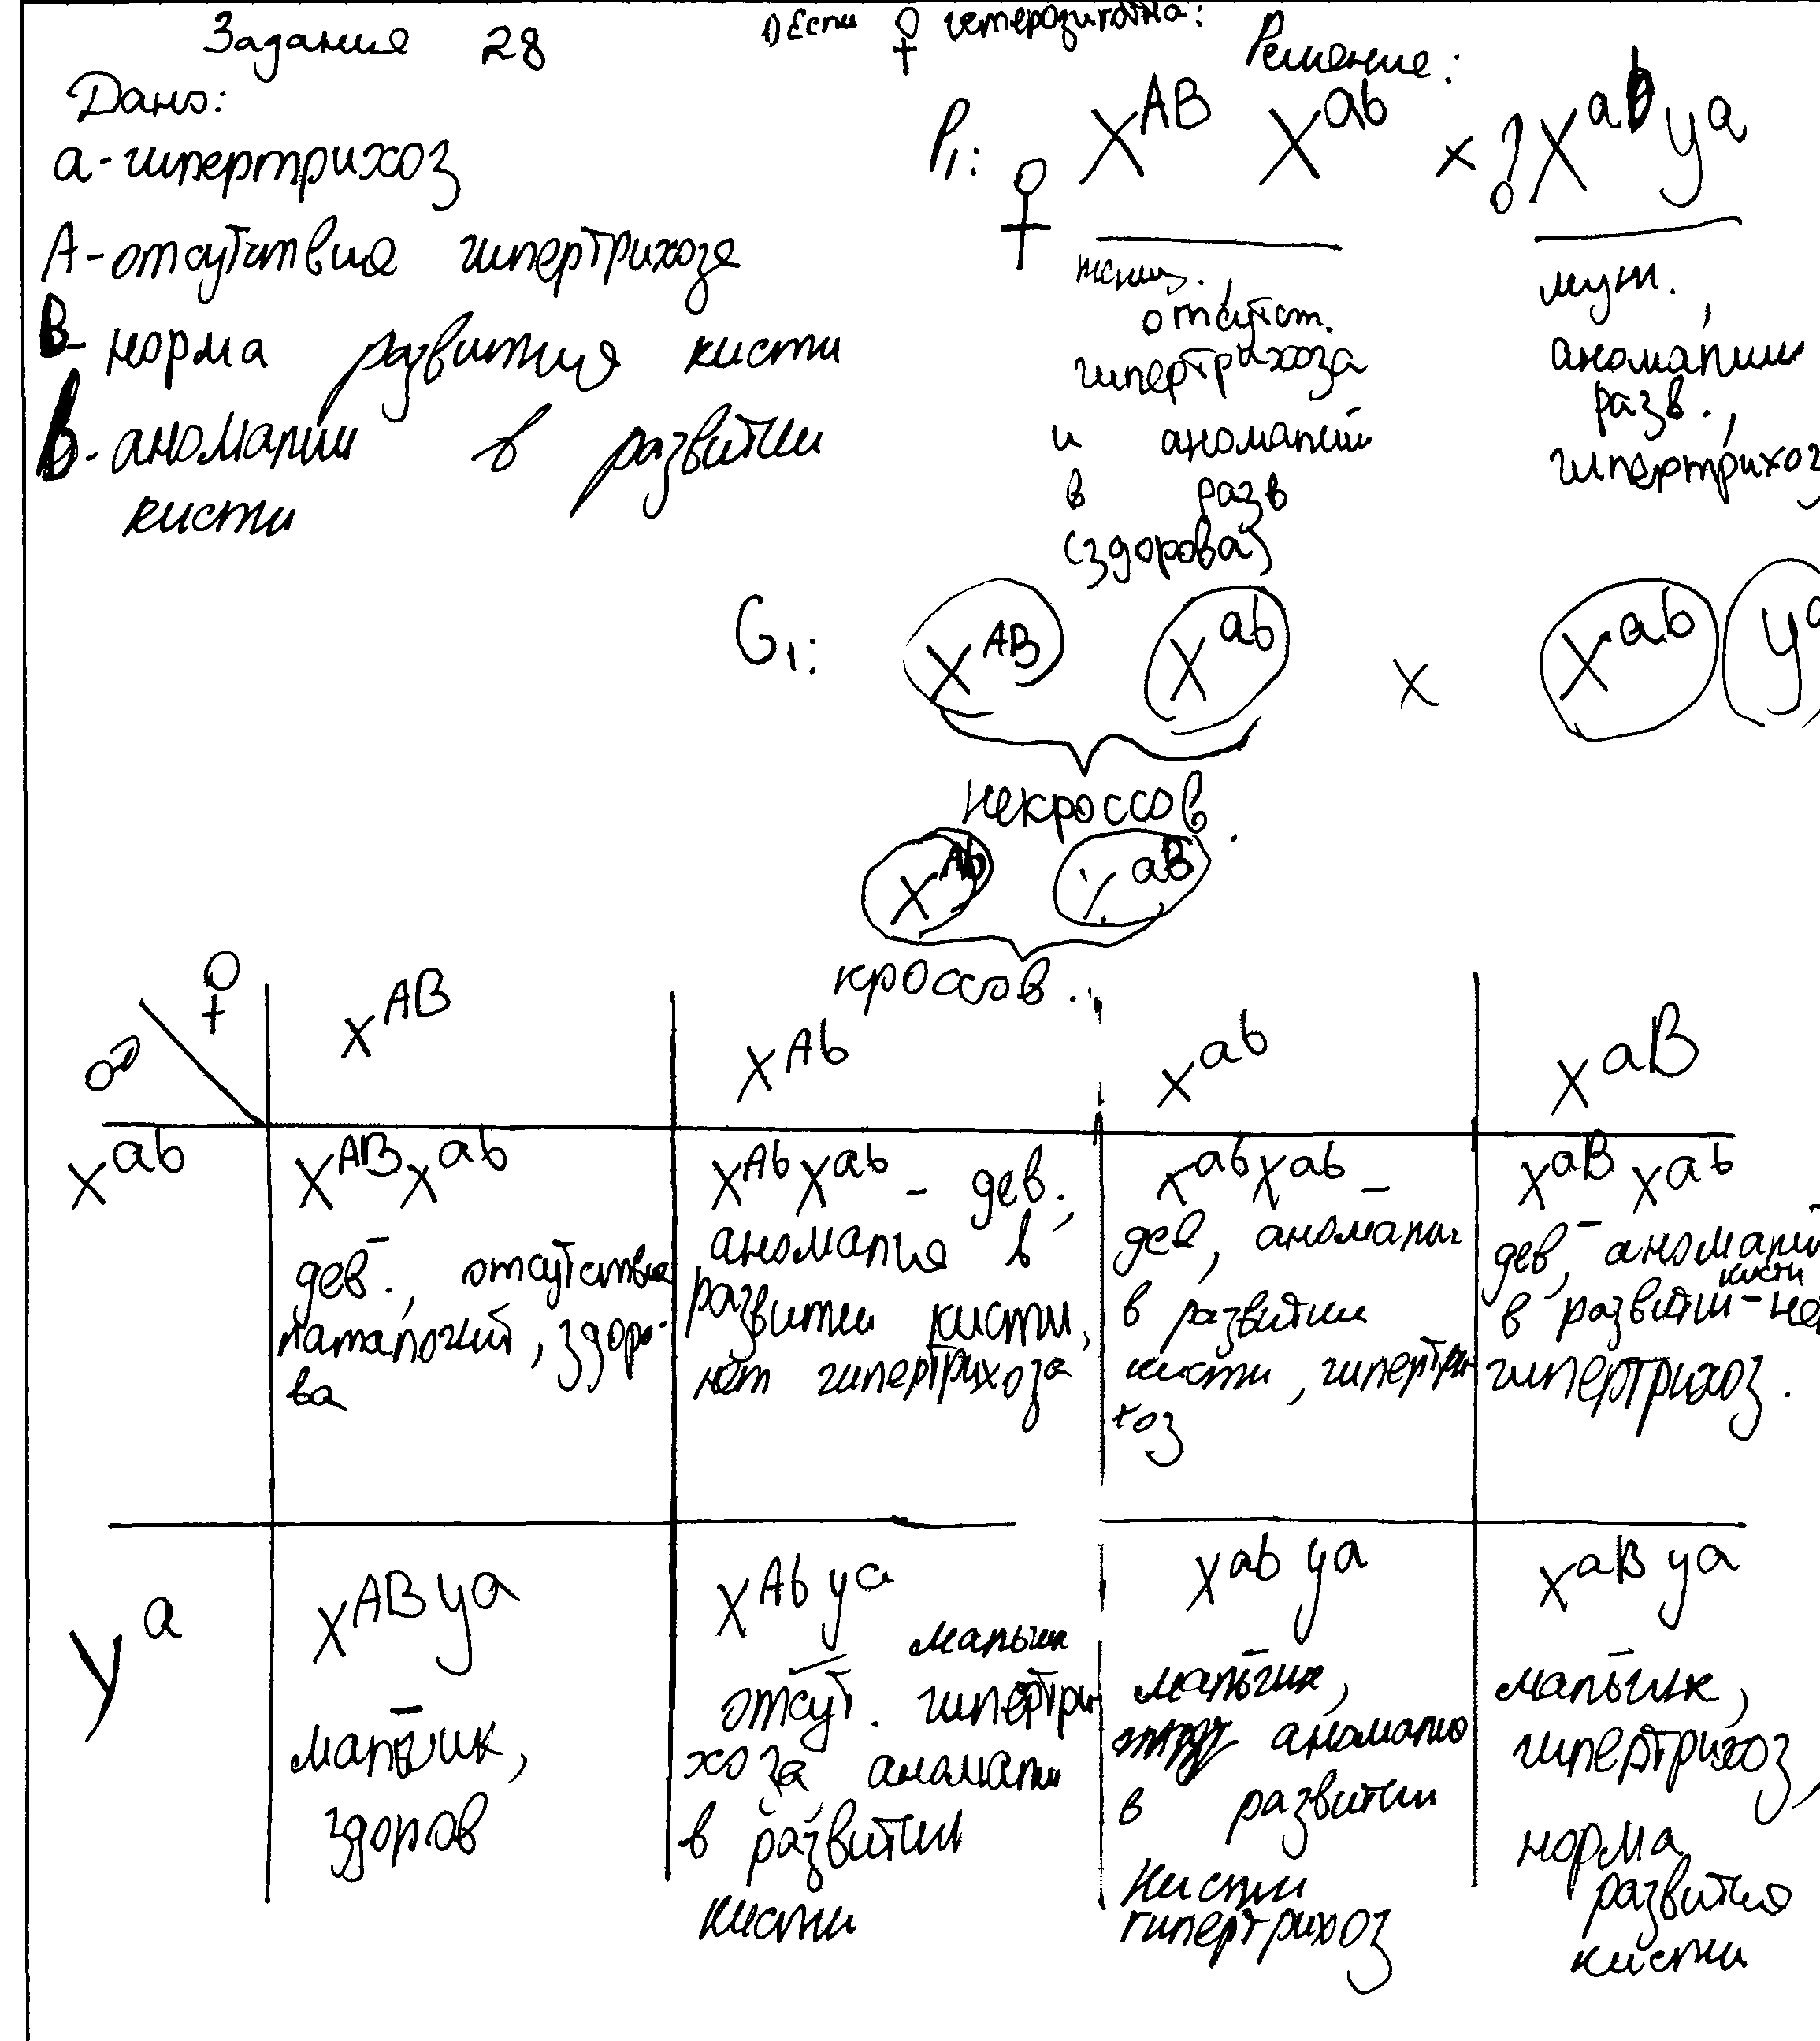 Задание 28
1) Если ♀ гетерозиготна:
Решение:
Дано:
а - гипертрихоз
А - отсутствие гипертрихоза
В - норма развития кисти
b - аномалии в развитии
кисти
P₁: ♀ X^AB X^ab × ♂ X^ab y^a
женщ.,
отсутст.
гипертрихоза
и аномалий
в разв
(здорова)
муж.,
аномалии
разв.,
гипертрихоз
G₁: X^AB X^ab × X^ab y^a
некроссов.
X^Ab X^aB
кроссов.
♂ ♀ X^AB X^Ab X^ab X^aB
X^ab
X^AB X^ab
дев., отсутствие
паталогий, здоро-
ва
X^Ab X^ab - дев.,
аномалия в
развитии кисти,
нет гипертрихоза
X^ab X^ab -
дев, аномалии
в развитии
кисти, гипертри
хоз
X^aB X^ab
дев, - аномалий
в развитии кисти - нет
гипертрихоз.
y^a
X^AB y^a
мальчик,
здоров
X^Ab y^a
мальчик
отсут. гипертри
хоза, аномалии
в развитии
кисти
X^ab y^a
мальчик,
аномалию
в развитии
кисти
гипертрихоз
X^aB y^a
мальчик,
гипертрихоз,
норма
развития
кисти